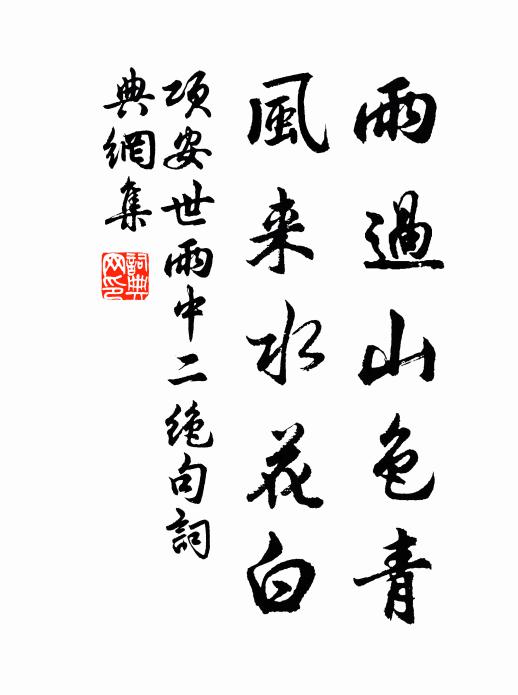 雨過山色青
風来水花白
項安世雨中二绝句詞
典網集
詞典
网印